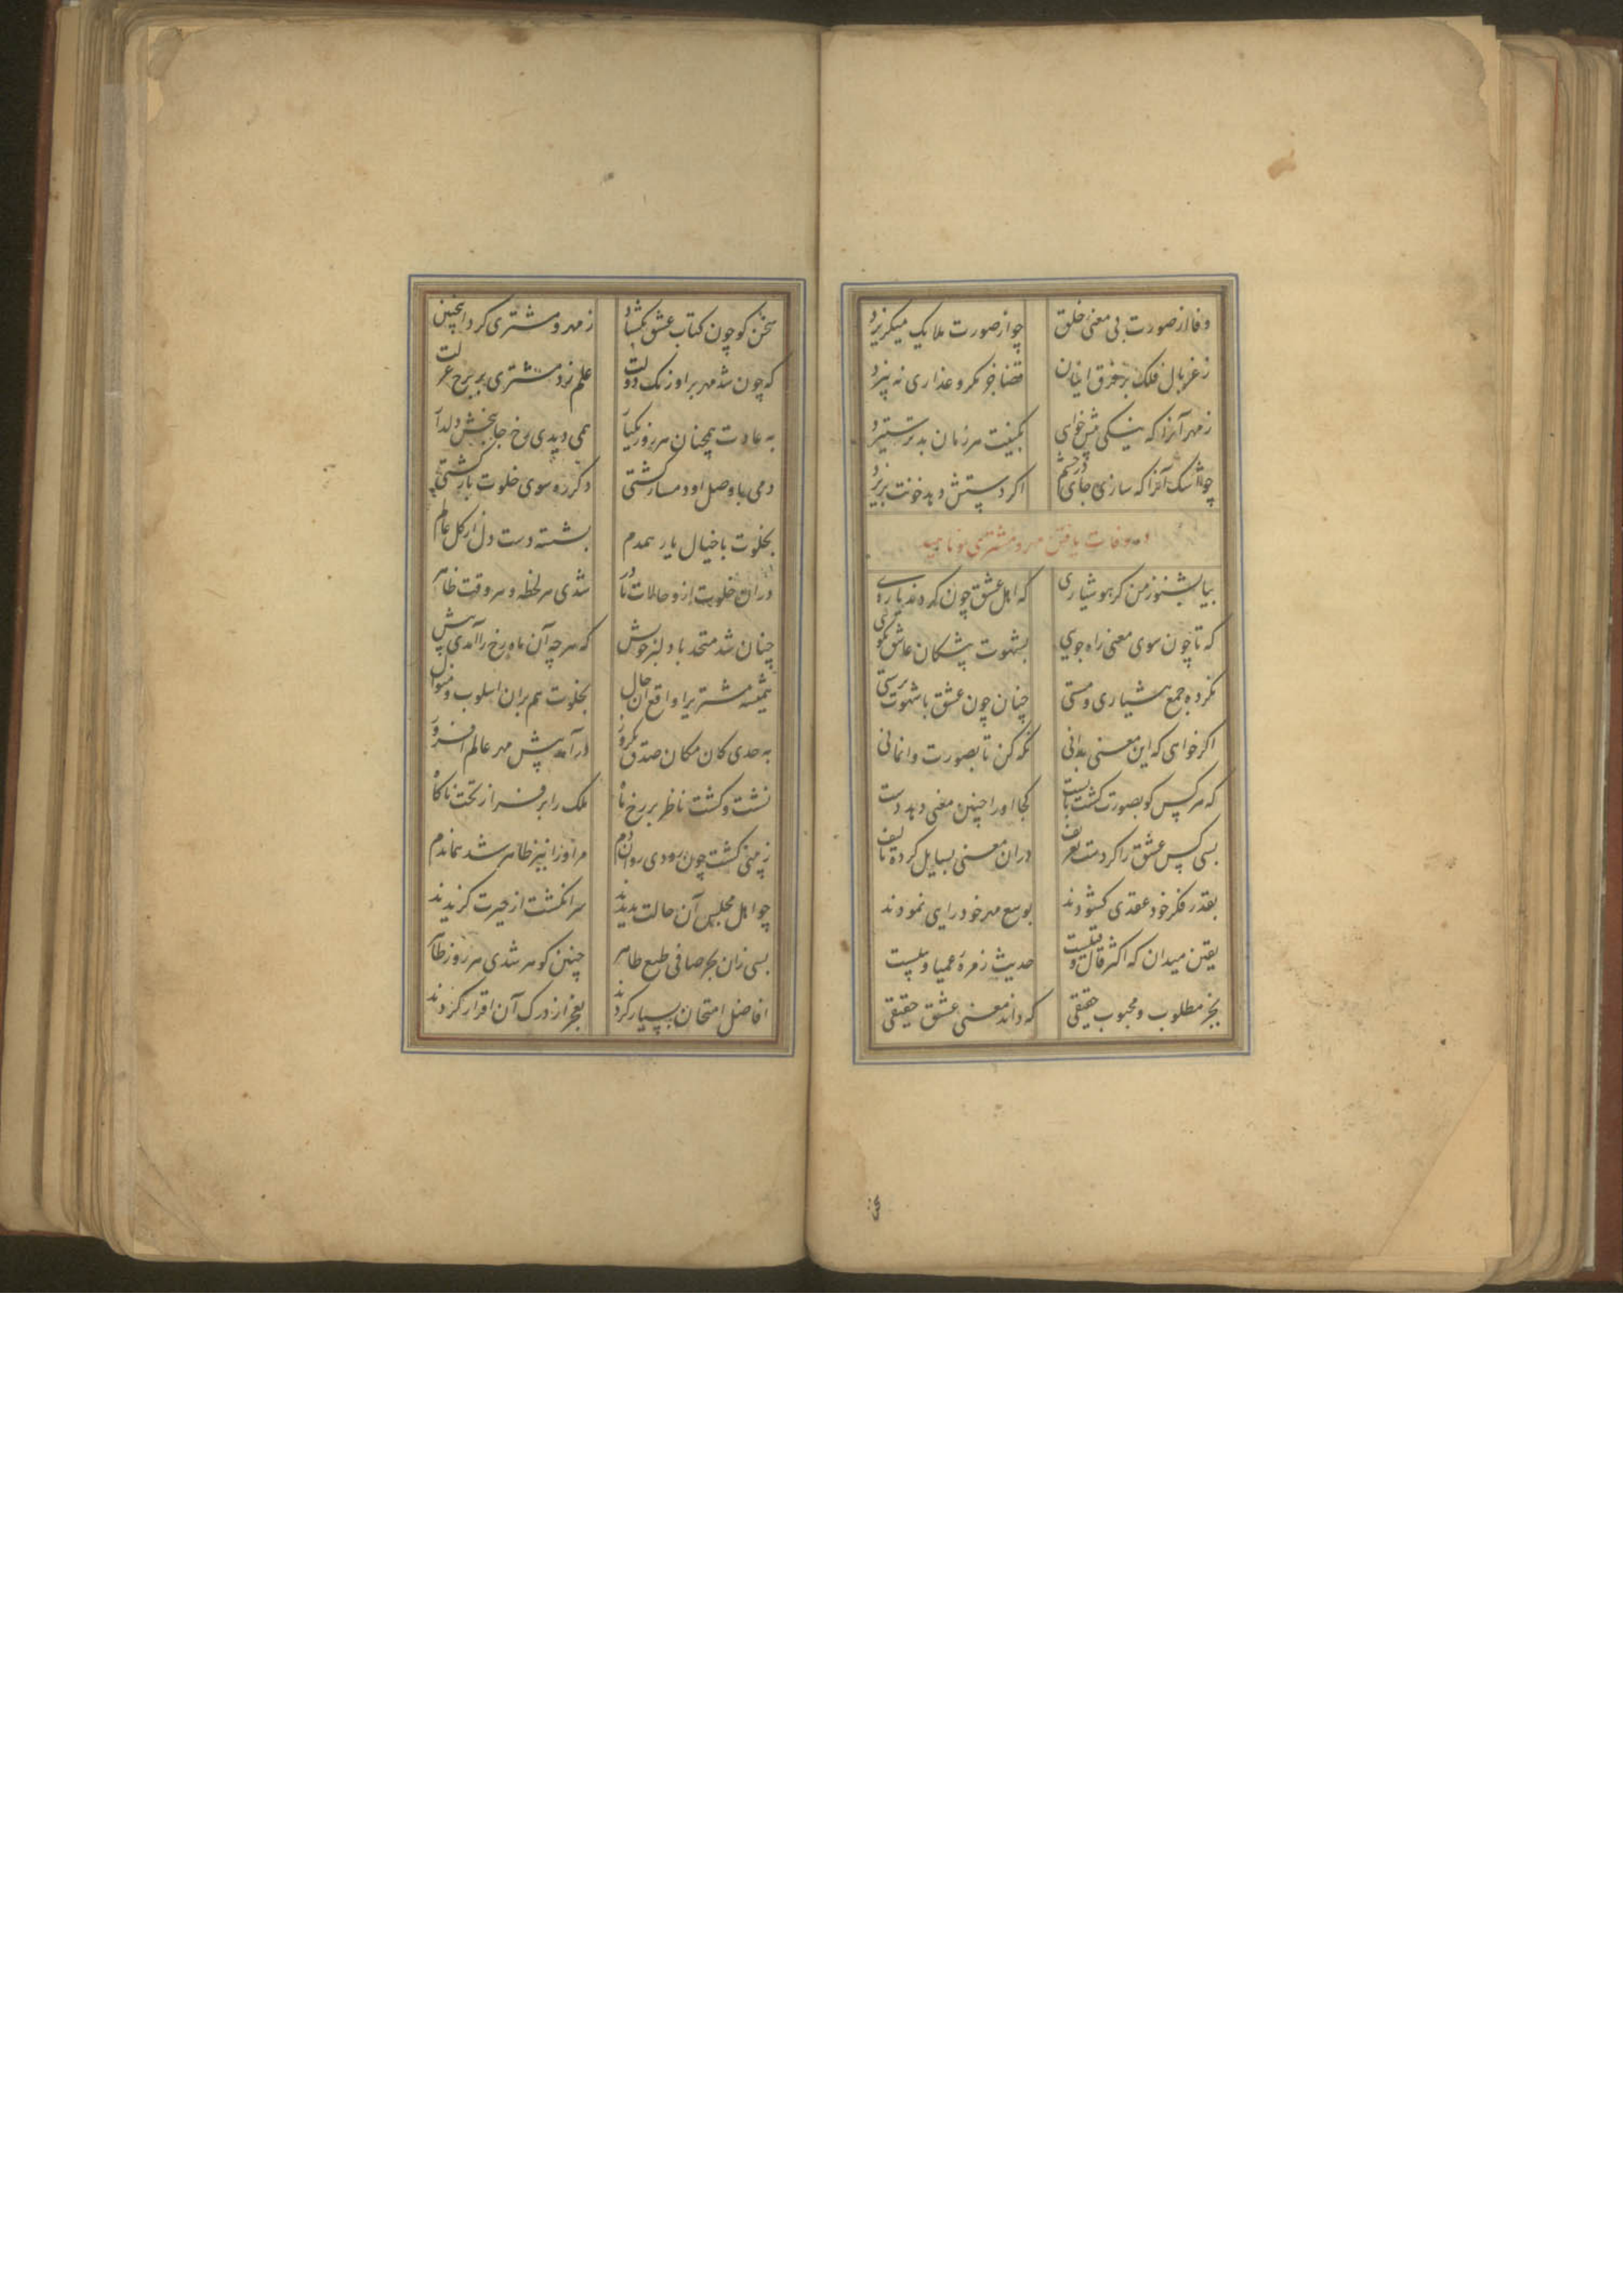 وفا از صورت بی معنی خلق چو از صورت ملایک میکریزد
ز غربال فلک بر فرق ایشان قضا جز مکر و غداری نه بیزد
ز مهر آنرا که نیکی پیش خواهی بکینت هر زمان بدتر ستیزد
چو اشک آنرا که سازی جای در چشم اکر دستش دهد خونت بریزد
در وفات یافتن مهر و مشتری و ناهید
بیا بشنو ز من کر هوشیاری که اهل عشق چون کرده‌اند یاری
که تا چون سوی معنی راه جویی بشهوت پیشکان عاشق نکویی
نکرده جمع هشیاری و مستی چنان چون عشق با شهوت پرستی
اکر خواهی که این معنی بدانی نکه کن تا بصورت وانمانی
که هر کس کو بصورت کشت پا بست کجا او را چنین معنی دهد دست
بسی کس عشق را کردست تعریف در آن معنی رسایل کرده تالیف
بقدر فکر خود عقدی کشودند بوسع مهر خود رایی نمودند
یقین میدان که اکثر قال و قیلست حدیث زمره عمیا و پیلست
بجز مطلوب و محبوب حقیقی که داند معنی عشق حقیقی
سخن کو چون کتاب عشق بکشاد ز مهر و مشتری کرد اینچنین
که چون شد مهر بر اورنک دولت علم زد مشتری بر برج عزلت
به عادت همچنان هر روز یکبار همی دیدی رخ جان بخش دلدار
دمی با وصل او دمساز کشتی دکر ره سوی خلوت باز کشتی
بخلوت با خیال یار همدم بشسته دست دل از کل عالم
در آن خلوت ازو حالات نادر شدی هر لحظه و هر وقت ظاهر
چنان شد متحد با دلبر خویش که هر چه آن ماه رخ را آمدی پیش
همیشه مشتری را واقع آن حال بخلوت هم بر آن اسلوب و منوال
به حدی کان مکان صدق یکروز درآمد پیش مهر عالم افروز
نشست و کشت ناظر بر رخ ماه ملک را بر فراز تخت ناکاه
ز بینی کشت چون رودی روان دم مر او را نیز ظاهر شد هماندم
چو اهل مجلس آن حالت بدیدند سر انکشت از حیرت کزیدند
بسی زان بحر صافی طبع طاهر چنین کوهر شدی هر روز ظاهر
افاضل امتحان بسیار کردند بعجز از درک آن اقرار کردند